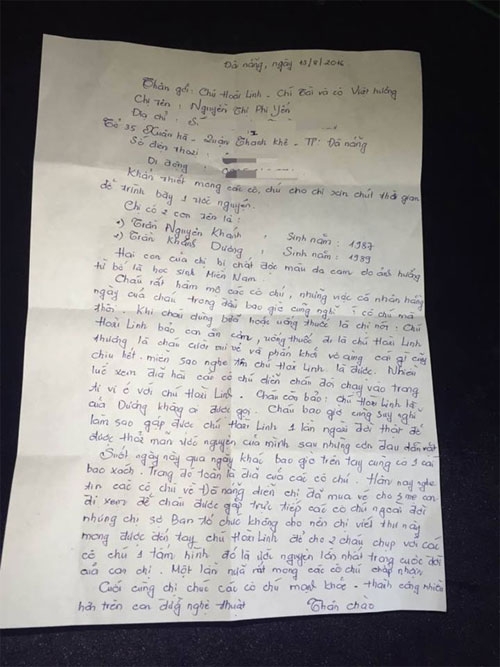 Đà nẵng, ngày 13/8/2016
Thân gởi: Chú Hoài Linh - Chí Tài và cô Việt hương
Chị tên: Nguyễn Thị Phi Yến
Địa chỉ: Số
Tổ 35 Xuân hà - Quận Thanh Khê - TP: Đà nẵng
Số điện thoại:
Di động:
Khẩn thiết mong các cô, chú cho chị xin chút thời gian
để trình bày 1 ước nguyện.
Chị có 2 con tên là:
1) Trần Nguyên Khánh, Sinh năm: 1987
2) Trần Khánh Dương, Sinh năm: 1989
Hai con của chị bị chất độc màu da cam do ảnh hưởng
từ bố là học sinh Miền Nam.
Cháu rất hâm mộ các cô chú, những việc cá nhân hằng
ngày của cháu trong đầu bao giờ cũng nghĩ có chú mà
thôi. Khi cháu dùng bữa hoặc uống thuốc là chị nói: Chú
Hoài Linh bảo con ăn cơm, uống thuốc đi là chú Hoài Linh
thương là cháu cười vui vẻ và phấn khởi vô cùng cái gì cũng
chịu hết. miễn sao nghe tên chú Hoài Linh là được. Nhiều
lúc xem đĩa hài các cô chú diễn cháu đòi chạy vào trong
ti vi ở với chú Hoài Linh. Cháu còn bảo: chú Hoài Linh là
của Dương không ai được gọi. Cháu bao giờ cũng suy nghĩ
làm sao gặp được chú Hoài Linh 1 lần ngoài đời thật để
được thoả mãn ước nguyện của mình sau những cơn đau đớn
Suốt ngày này qua ngày khác bao giờ trên tay cũng có 1 cái
bao xách. Trong đó toàn là đĩa của các cô chú. Hôm nay nghe
tin các cô chú về Đà nẵng diễn chị đã mua vé cho 3 mẹ con
đi xem để cháu được gặp trực tiếp các cô chú ngoài đời
nhưng chị sợ Ban tổ chức không cho nên chị viết thư này
mong được đến tay chú Hoài Linh để cho 2 cháu chụp với các
cô chú 1 tấm hình đó là ước nguyện lớn nhất trong cuộc đời
của con chị. Một lần nữa rất mong các cô chú chấp nhận.
Cuối cùng chị chúc các cô chú mạnh khoẻ - thành công nhiều
hơn trên con đường nghệ thuật
Thân chào